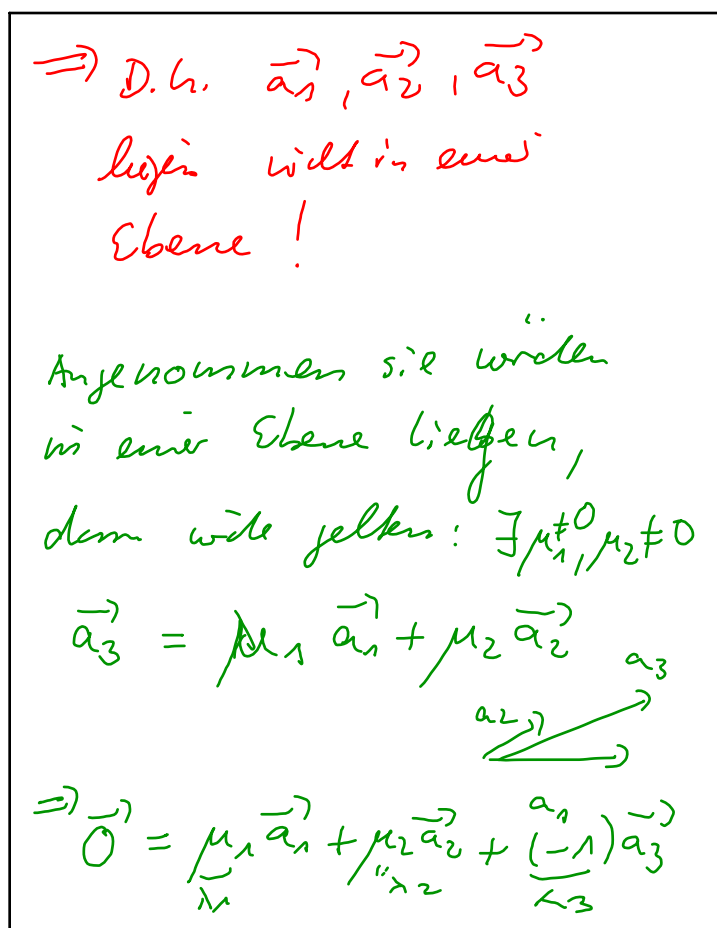 ⇒ D.h. a⃗₁, a⃗₂, a⃗₃
liegen nicht in einer
Ebene!
Angenommen sie würden
in einer Ebene liegen,
dann würde gelten: ∃ μ₁≠0, μ₂≠0
a⃗₃ = μ₁ a⃗₁ + μ₂ a⃗₂
a3
a2
a₁
⇒ 0⃗ = μ₁ a⃗₁ + μ₂ a⃗₂ + (-1) a⃗₃
λ₁ "λ₂ λ₃